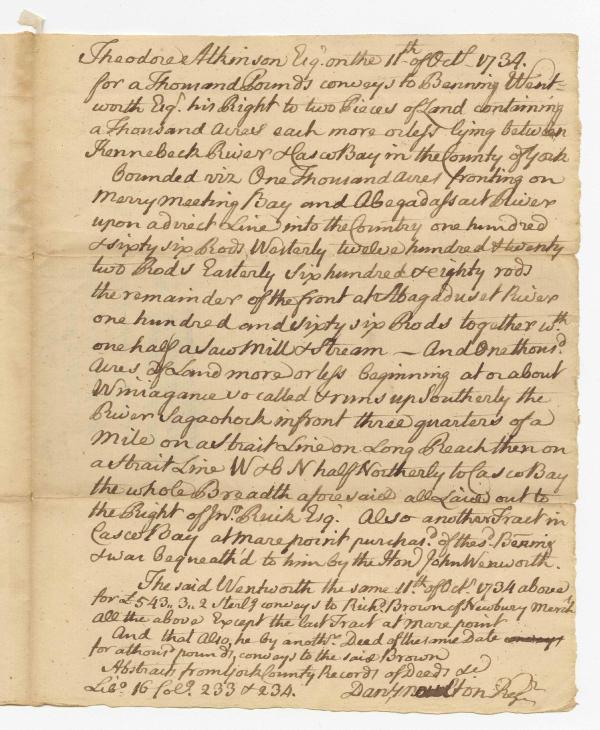 Theodore Atkinson Esqr. on the 11th of Octr. 1734.
for a Thousand Pounds conveys to Benning Went=
worth Esqr. his Right to two Pieces of Land containing
a Thousand Acres each more or less lying between
Kennebeck River & Casco Bay in the County of York
Bounded viz One Thousand Acres fronting on
Merry meeting Bay and Abegadassact River
upon a direct Line into the Country one hundred
& sixty six Rods Westerly twelve hundred & twenty
two Rods Easterly Six hundred & eighty rods
the remainder of the front at Abagaduset River
one hundred and sixty six Rods together wth.
one half a Saw Mill & Stream — And One thousd.
Acres of Land more or less beginning at or about
Winiagance so called & runs up Southerly the
River Sagaohock in front three quarters of a
Mile on a Strait Line on Long Reach then on
a Strait Line W & B N half Northerly to Casco Bay
the whole Breadth aforesaid all Laid out to
the Right of Jno. Ruik Esqr. Also another Tract in
Casco Bay at mare point purchasd. of the sd. Benning
& was bequeath'd to him by the Hond. John Wenworth.
The said Wentworth the same 11th. of Octr. 1734 above
for £543..3..2 Sterlg. conveys to Richd. Brown of Newbury Mercht.
all the above Except the last Tract at Mare point
And that Also, he by anothr. Deed of the same Date
for a thousd. pounds, conveys to the said Brown
Abstract from York County Records of Deeds
Libo. 16 Folo. 233 & 234. Danl. Moulton Regr.